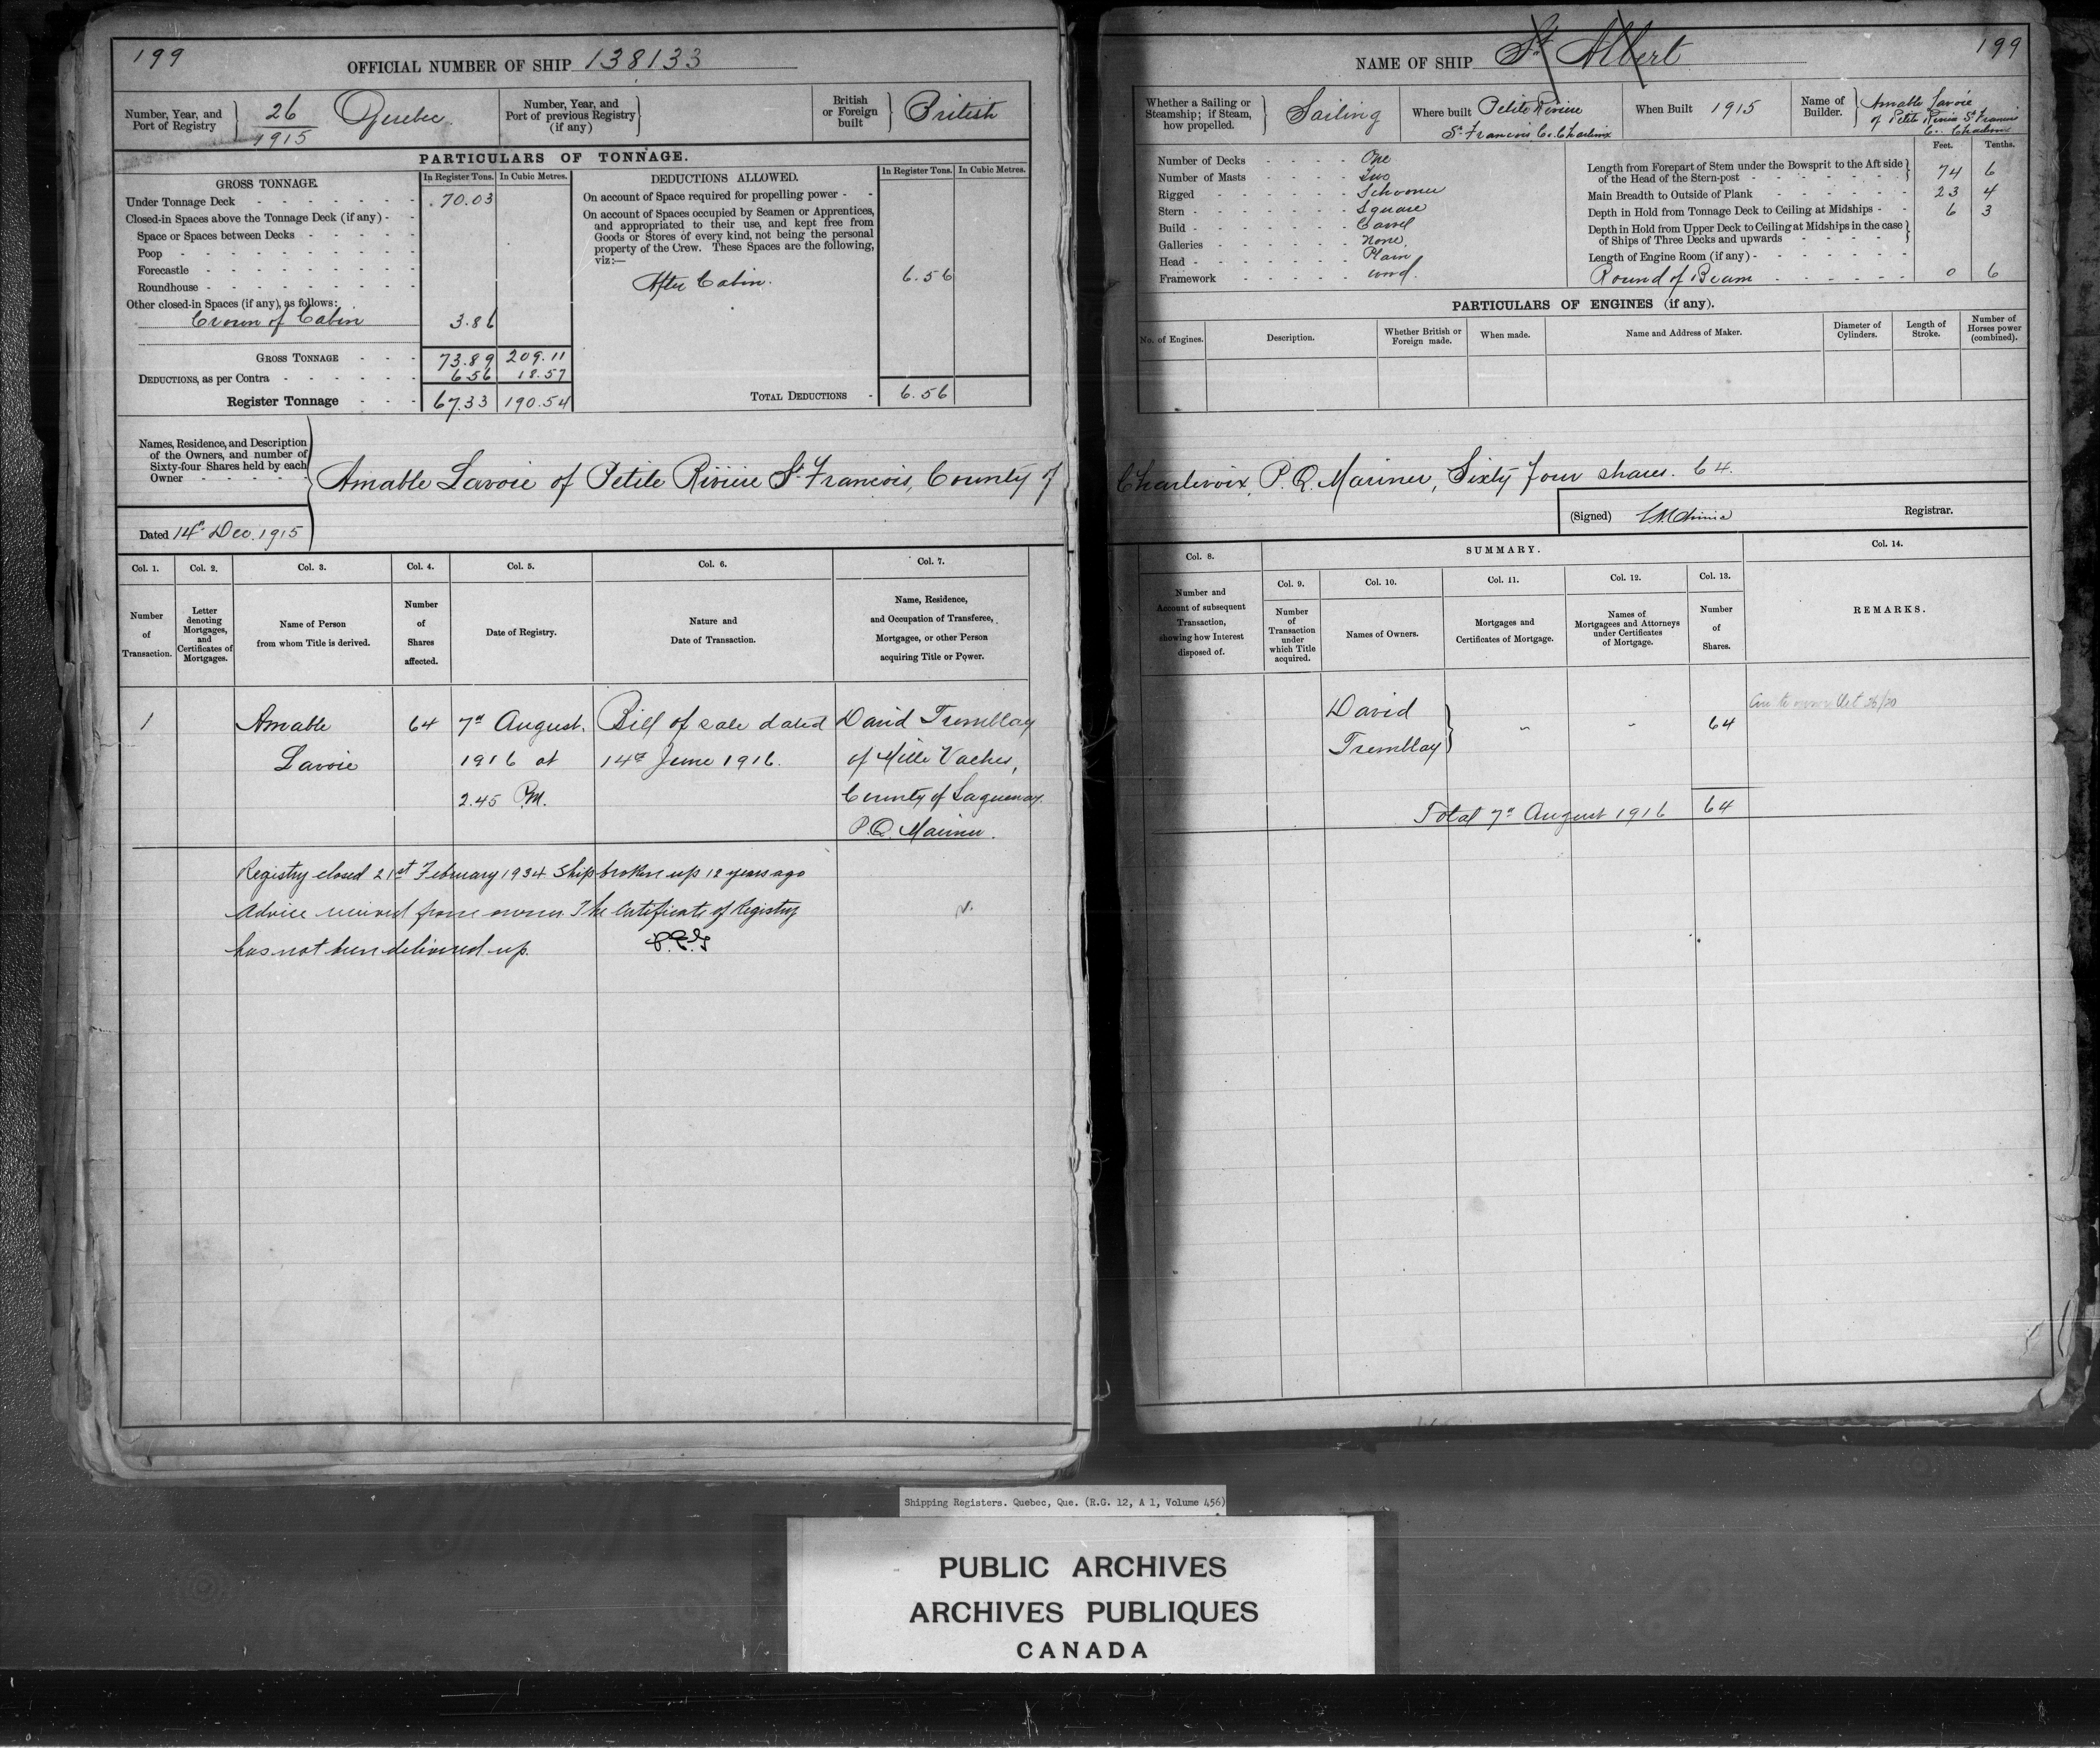 199
OFFICIAL NUMBER OF SHIP 138133
Number, Year, and
Port of Registry
26
1915
Quebec
Number, Year, and
Port of previous Registry
(if any)
British
or Foreign
built
British
PARTICULARS OF TONNAGE.
GROSS TONNAGE.
In Register Tons.
In Cubic Metres.
Under Tonnage Deck 70.03
Closed-in Spaces above the Tonnage Deck (if any)
Space or Spaces between Decks
Poop
Forecastle
Roundhouse
Other closed-in Spaces (if any), as follows:
Crown of Cabin 3.86
GROSS TONNAGE 73.89 209.11
DEDUCTIONS, as per Contra 6.56 18.57
Register Tonnage 67.33 190.54
DEDUCTIONS ALLOWED.
In Register Tons.
In Cubic Metres.
On account of Space required for propelling power
On account of Spaces occupied by Seamen or Apprentices,
and appropriated to their use, and kept free from
Goods or Stores of every kind, not being the personal
property of the Crew. These Spaces are the following,
viz:—
After Cabin. 6.56
TOTAL DEDUCTIONS 6.56
Names, Residence, and Description
of the Owners, and number of
Sixty-four Shares held by each
Owner
Amable Lavoie of Petite Riviere St. Francois, County of
Dated 14th Dec. 1915
Col. 1.
Number
of
Transaction.
Col. 2.
Letter
denoting
Mortgages,
and
Certificates of
Mortgages.
Col. 3.
Name of Person
from whom Title is derived.
Col. 4.
Number
of
Shares
affected.
Col. 5.
Date of Registry.
Col. 6.
Nature and
Date of Transaction.
Col. 7.
Name, Residence,
and Occupation of Transferee,
Mortgagee, or other Person
acquiring Title or Power.
1
Amable
Lavoie
64
7th August.
1916 at
2.45 P.M.
Bill of sale dated
14th June 1916.
David Tremblay
of Mille Vaches,
County of Saguenay
P.Q. Mariner.
Registry closed 21st February 1934 Ship broken up 12 years ago
Advice received from owner. The Certificate of Registry
has not been delivered up.
NAME OF SHIP St Albert
199
Whether a Sailing or
Steamship; if Steam,
how propelled.
Sailing
Where built Petite Riviere
St Francois Co. Charlevoix
When Built 1915
Name of
Builder.
Amable Lavoie
of Petite Riviere St Francois
Co. Charlevoix
Number of Decks One
Number of Masts Two
Rigged Schooner
Stern Square
Build Carvel
Galleries None.
Head Plain
Framework wood.
Feet.
Tenths.
Length from Forepart of Stem under the Bowsprit to the Aft side
of the Head of the Stern-post 74 6
Main Breadth to Outside of Plank 23 4
Depth in Hold from Tonnage Deck to Ceiling at Midships 6 3
Depth in Hold from Upper Deck to Ceiling at Midships in the case
of Ships of Three Decks and upwards
Length of Engine Room (if any)
Round of Beam 0 6
PARTICULARS OF ENGINES (if any).
No. of Engines.
Description.
Whether British or
Foreign made.
When made.
Name and Address of Maker.
Diameter of
Cylinders.
Length of
Stroke.
Number of
Horses power
(combined).
Charlevoix, P.Q. Mariner, Sixty four shares. 64.
(Signed)
Registrar.
Col. 8.
Number and
Account of subsequent
Transaction,
showing how Interest
disposed of.
SUMMARY.
Col. 9.
Number
of
Transaction
under
which Title
acquired.
Col. 10.
Names of Owners.
Col. 11.
Mortgages and
Certificates of Mortgage.
Col. 12.
Names of
Mortgagees and Attorneys
under Certificates
of Mortgage.
Col. 13.
Number
of
Shares.
Col. 14.
REMARKS.
David
Tremblay
64
Total 7th August 1916 64
Shipping Registers. Quebec, Que. (R.G. 12, A 1, Volume 456)
PUBLIC ARCHIVES
ARCHIVES PUBLIQUES
CANADA